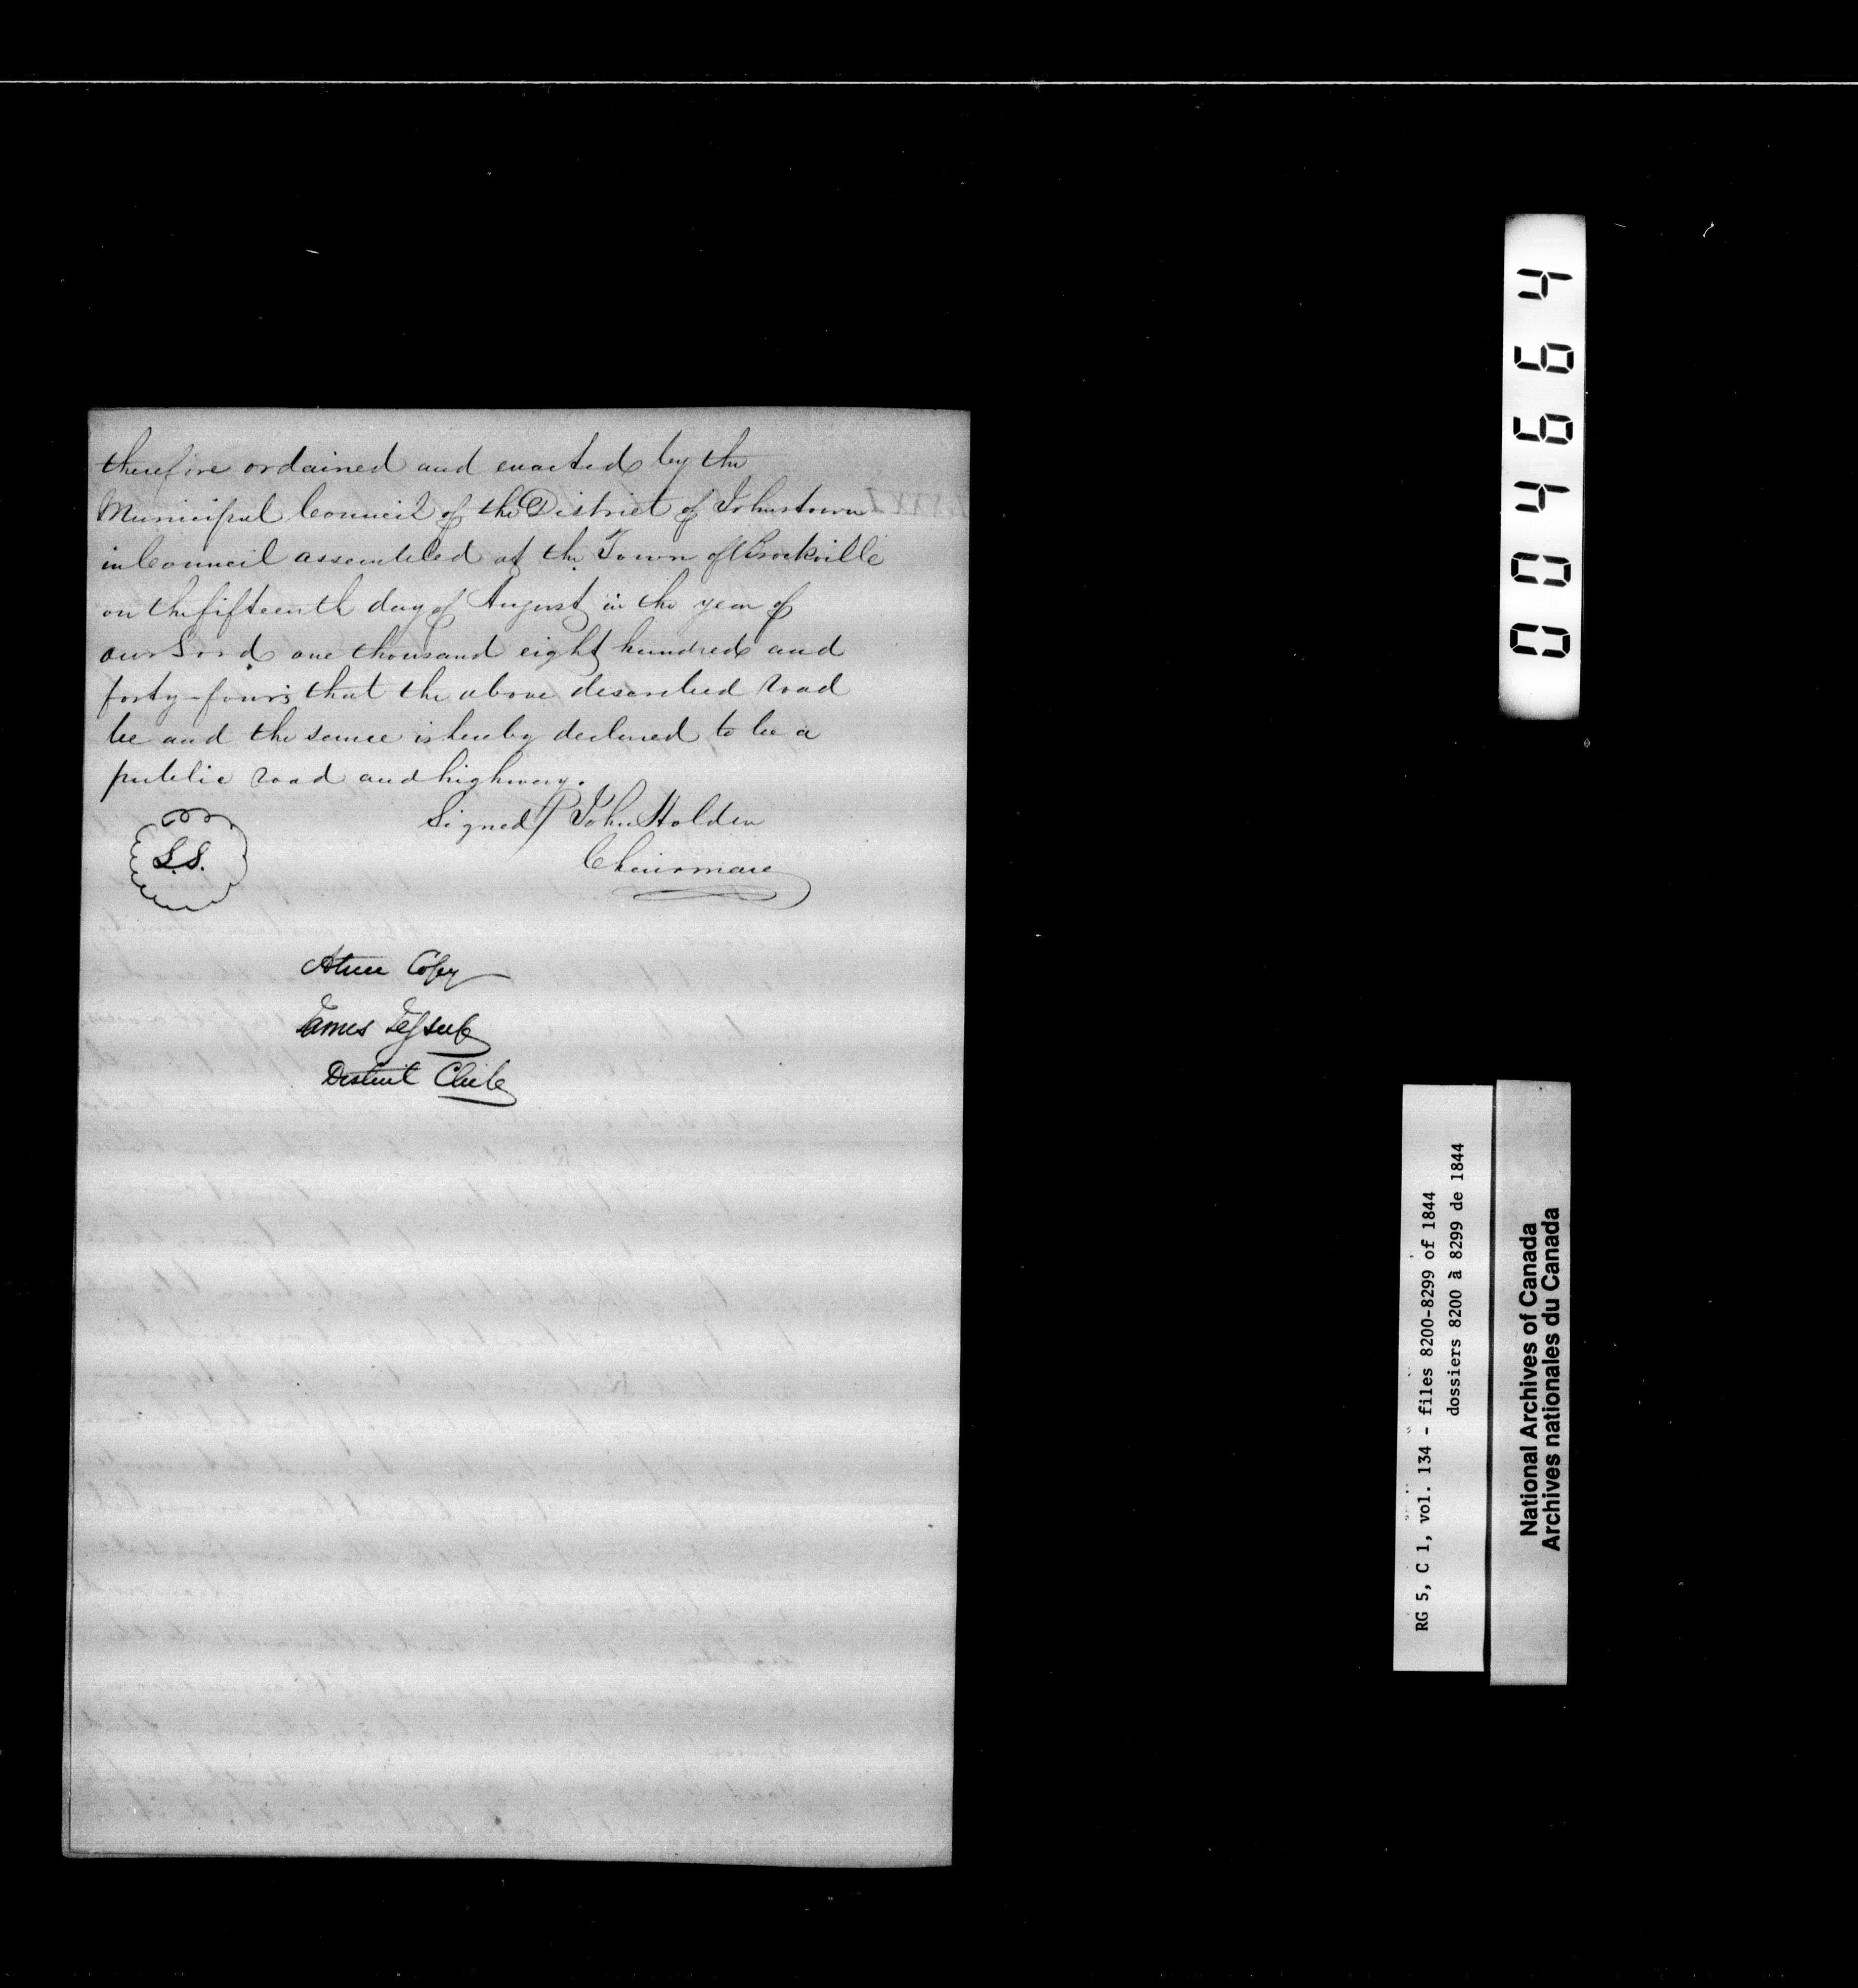 therefore ordained and enacted by the
Municipal Council of the District of Johnstown
in Council assembled at the Town of Brockville
on the fifteenth day of August in the year of
our Lord one thousand eight hundred and
forty-four; that the above described road
be and the same is hereby declared to be a
public road and highway.
Signed/ John Holden
Chairman
L.S.
A true Copy
James Jessup
District Clerk
004664
RG 5, C 1, vol. 134 - files 8200-8299 of 1844
dossiers 8200 à 8299 de 1844
National Archives of Canada
Archives nationales du Canada